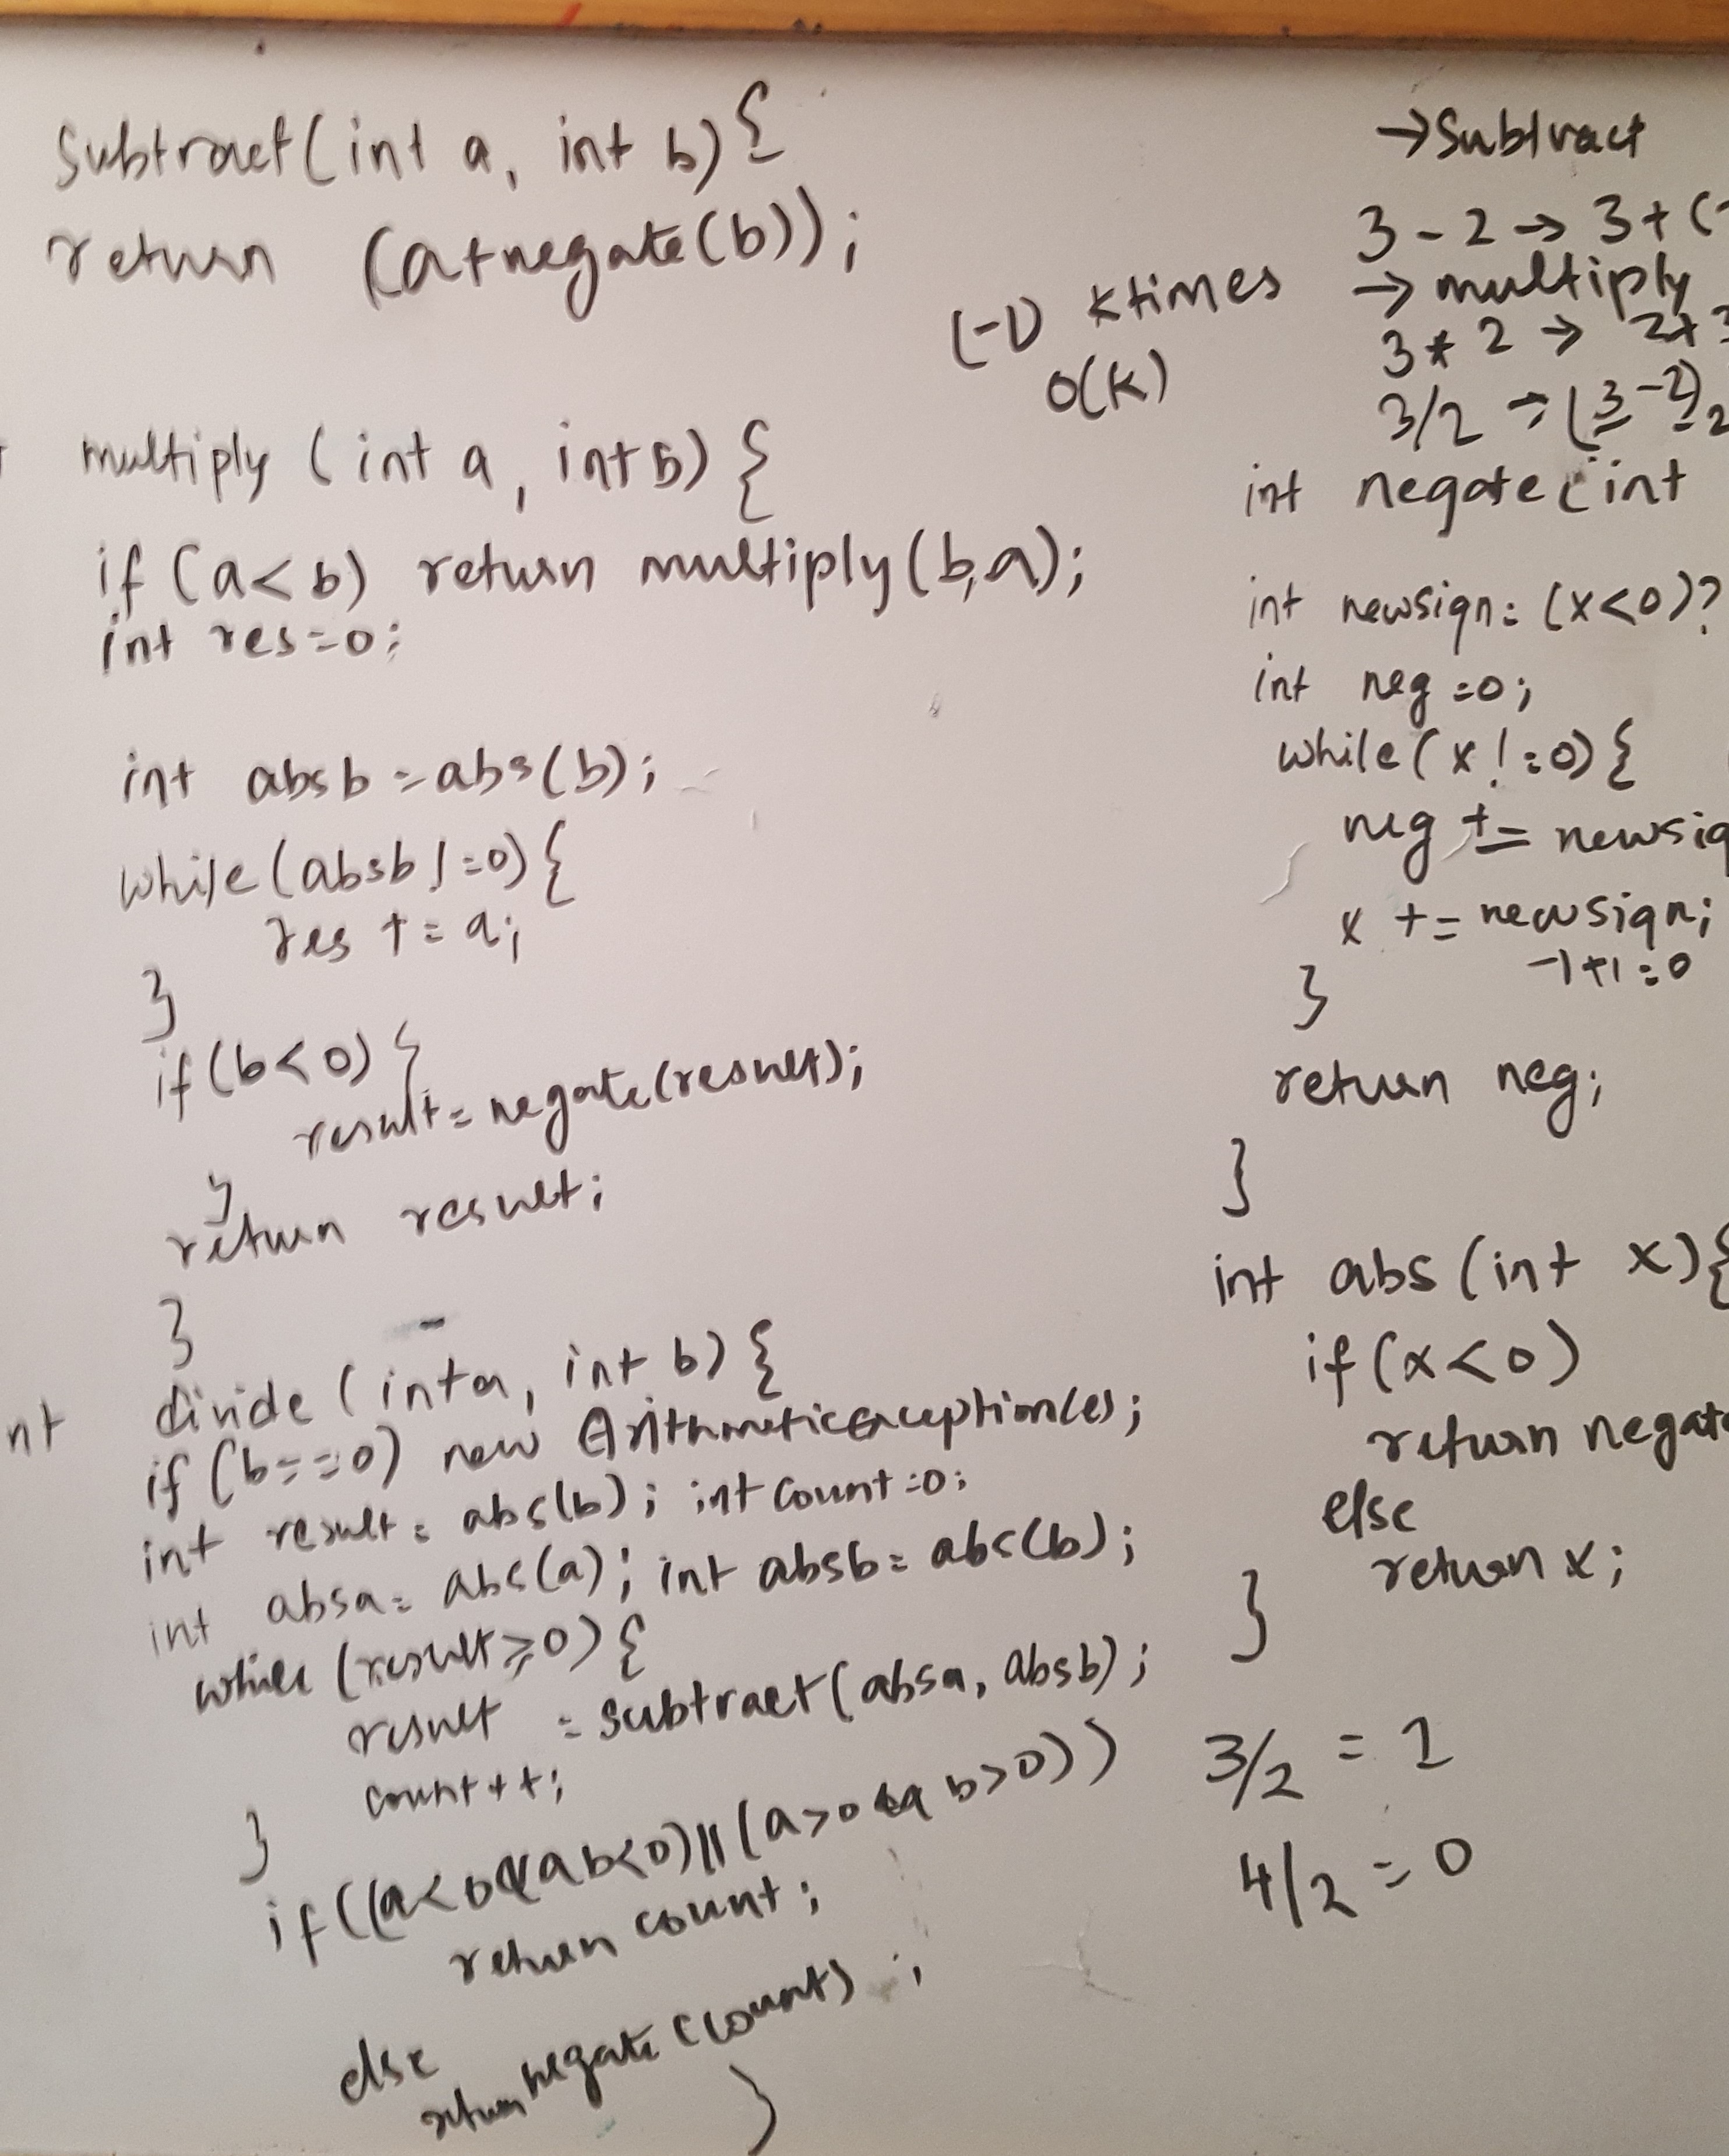 Subtract(int a, int b){
return (a+negate(b));
multiply (int a, int b) {
if (a<b) return multiply(b,a);
int res=0;
int absb=abs(b);
while(absb!=0){
res += a;
}
if(b<0){
result=negate(result);
}
return result;
}
nt divide (int a, int b) {
if (b==0) new ArithmeticException(e);
int result = abs(b); int count=0;
int absa= abs(a); int absb= abs(b);
while (result≥0) {
result = subtract(absa, absb);
count++;
}
if((a<0&&b<0)||(a>0&&b>0))
return count;
else
return negate(count);
}
(-1) k times
O(K)
→Subtract
3-2→ 3+(-
→multiply
3*2→ 2+3
3/2→(3-2)2
int negate(int
int newsign=(x<0)?
int neg=0;
while(x!=0){
neg += newsig
x += newsign;
-1+1=0
}
return neg;
}
int abs(int x){
if(x<0)
return negate
else
return x;
}
3/2 = 1
4/2 = 0